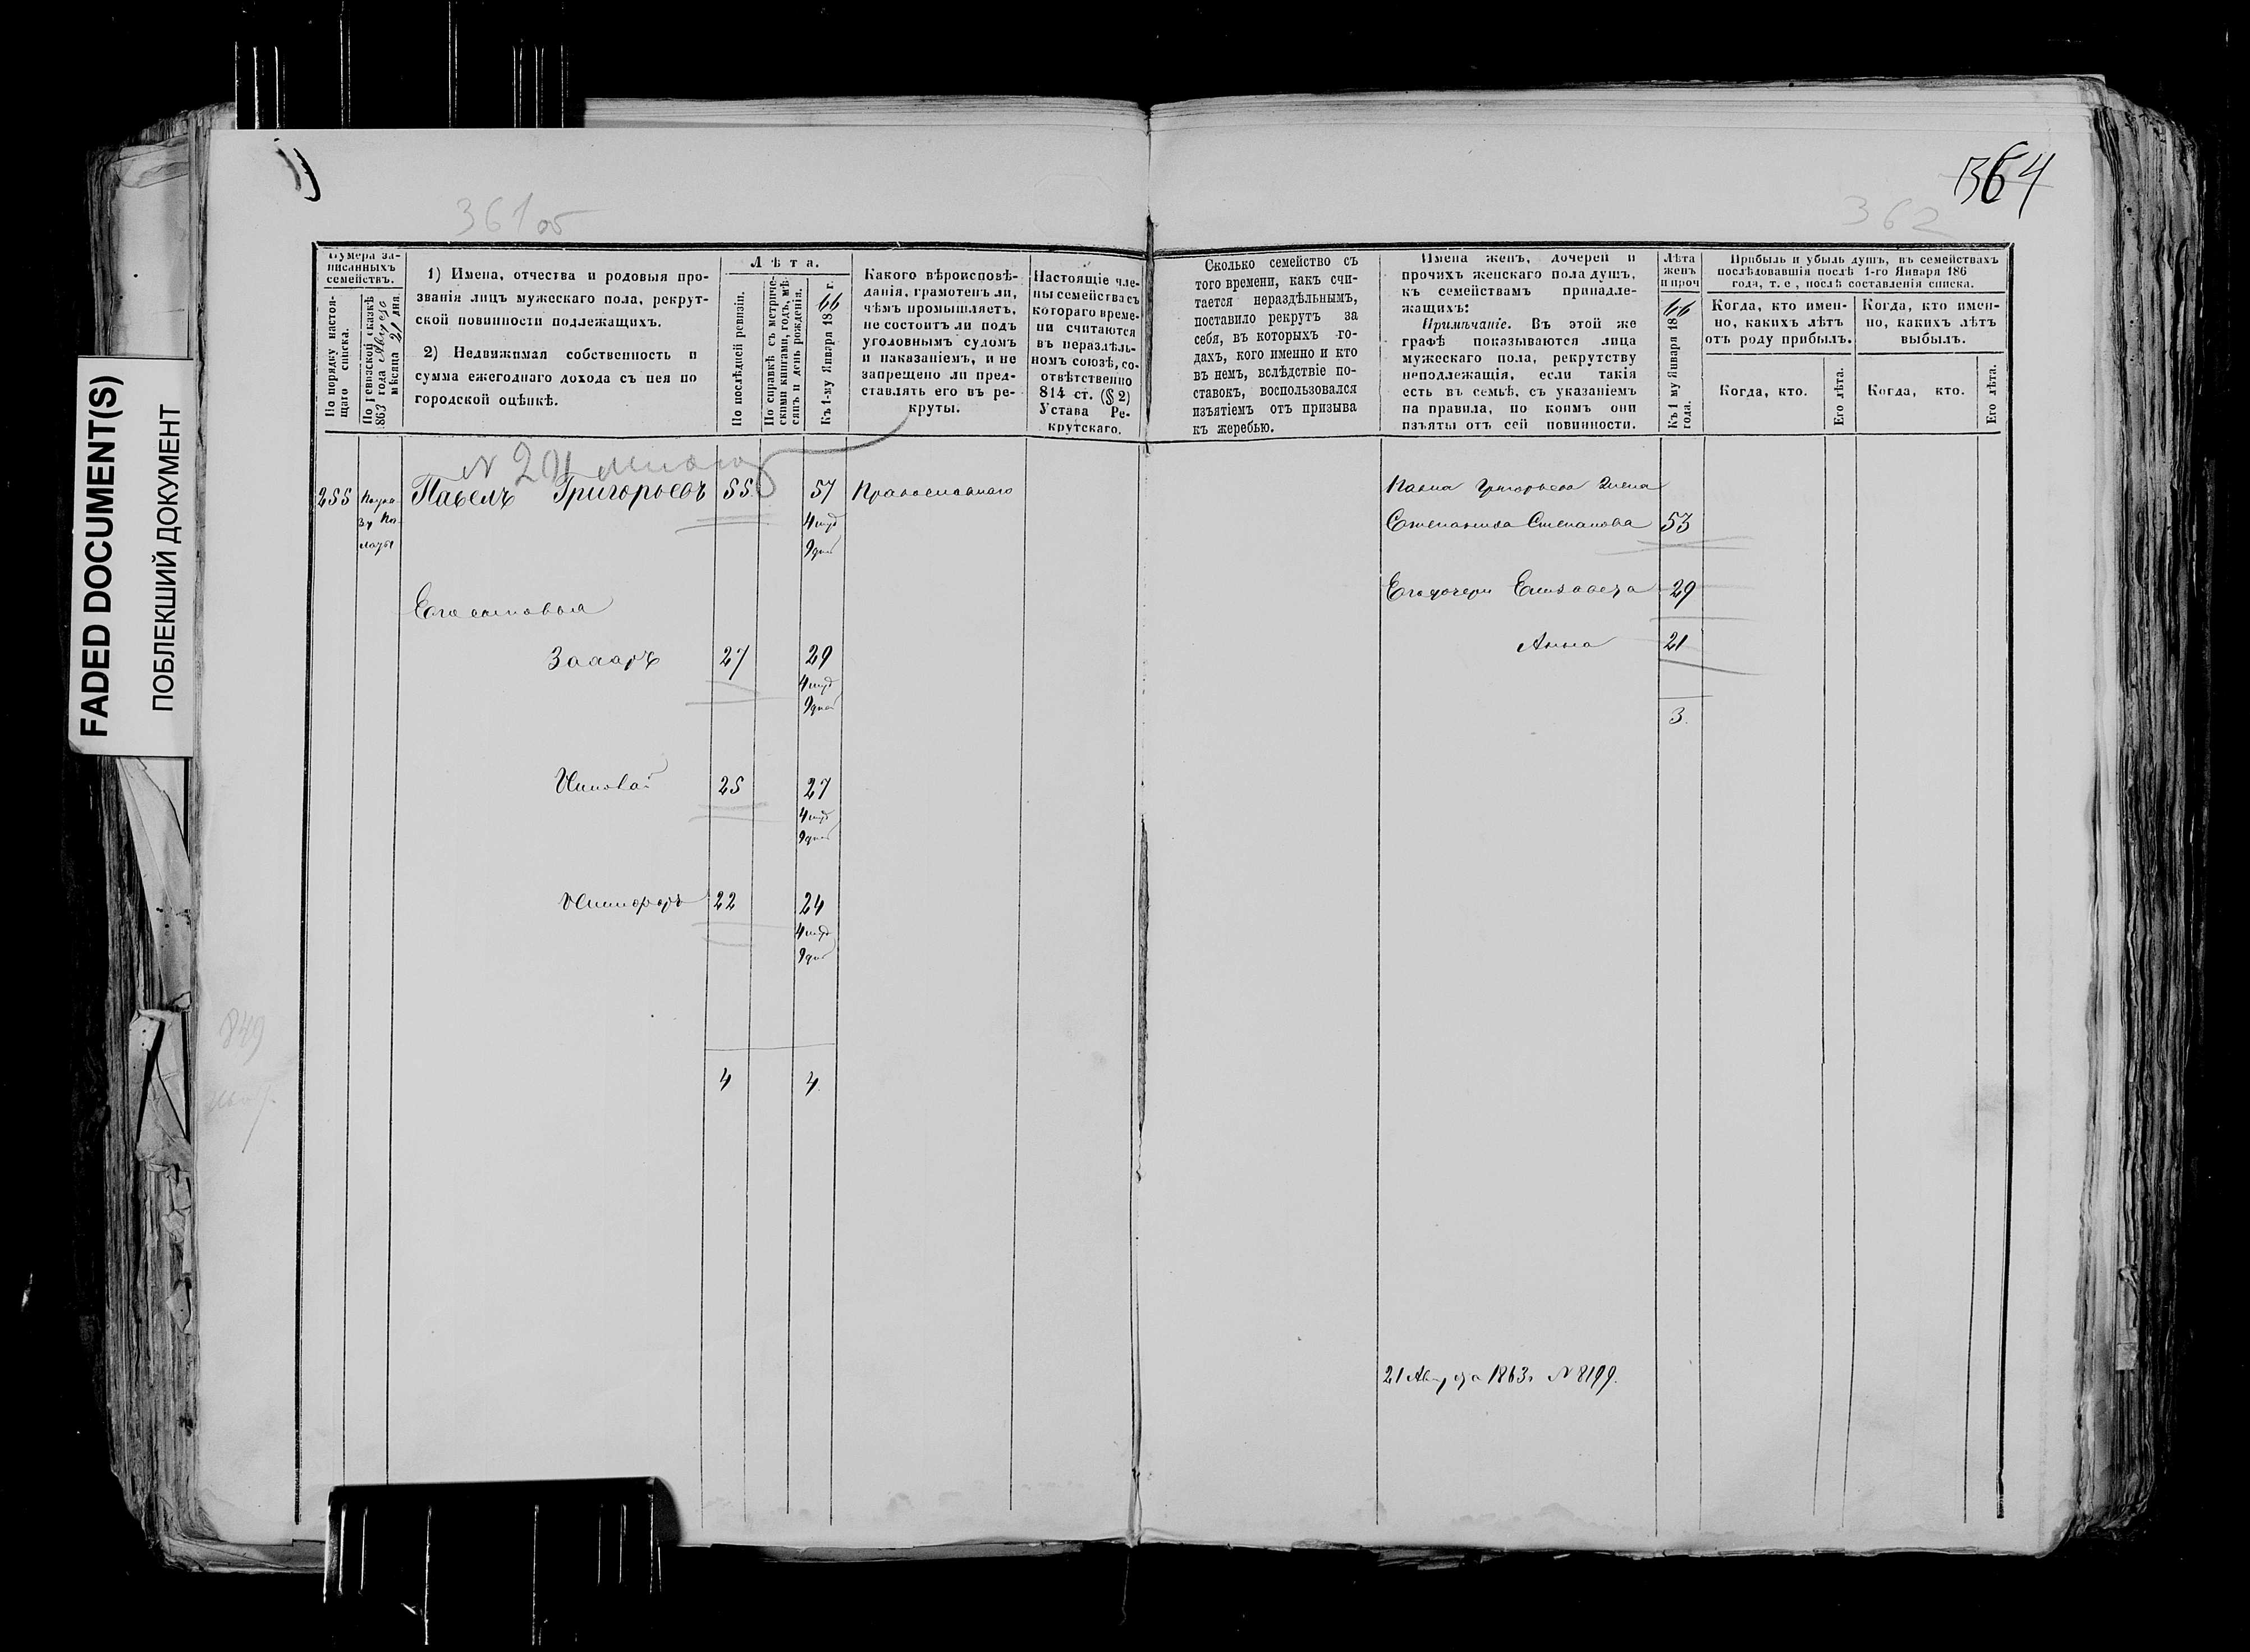 FADED DOCUMENT(S)
ПОБЛЕКШИЙ ДОКУМЕНТ
361об
362
364
Нумера за-
писанныхъ
семействъ.
По порядку настоя-
щаго списка.
По ревизской сказкѣ
1863 года Августа
мѣсяца 21 дня.
1) Имена, отчества и родовыя про-
званія лицъ мужескаго пола, рекрут-
ской повинности подлежащихъ.
2) Недвижимая собственность и
сумма ежегоднаго дохода съ нея по
городской оцѣнкѣ.
Лѣта.
По послѣдней ревизіи.
По справкѣ съ метриче-
скими книгами, годъ, мѣ-
сяцъ и день рожденія.
Къ 1-му Января 1866 г.
Какого вѣроисповѣ-
данія, грамотенъ ли,
чѣмъ промышляетъ,
не состоитъ ли подъ
уголовнымъ судомъ
и наказаніемъ, и не
запрещено ли пред-
ставлять его въ ре-
круты.
Настоящіе чле-
ны семейства съ
котораго време-
ни считаются
въ нераздѣль-
номъ союзѣ, со-
отвѣтственно
814 ст. (§ 2)
Устава Ре-
крутскаго.
Сколько семейство съ
того времени, какъ счи-
тается нераздѣльнымъ,
поставило рекрутъ за
себя, въ которыхъ го-
дахъ, кого именно и кто
въ немъ, вслѣдствіе по-
ставокъ, воспользовался
изъятіемъ отъ призыва
къ жеребью.
Имена женъ, дочерей и
прочихъ женскаго пола душъ,
къ семействамъ принадле-
жащихъ:
Примѣчаніе. Въ этой же
графѣ показываются лица
мужескаго пола, рекрутству
неподлежащія, если такія
есть въ семьѣ, съ указаніемъ
на правила, по коимъ они
изъяты отъ сей повинности.
Лѣта
женъ
и проч
Къ 1 му Января 1866
года.
Прибыль и убыль душъ, въ семействахъ
послѣдовавшія послѣ 1-го Января 186
года, т. е, послѣ составленія списка.
Когда, кто имен-
но, какихъ лѣтъ
отъ роду прибылъ.
Когда, кто.
Его лѣта.
Когда, кто имен-
но, какихъ лѣтъ
выбылъ.
Когда, кто.
Его лѣта.
255 Павелъ Григорьевъ 55 57 Православнаго
Павла Григорьева жена
Степанида Степанова 53
Его дочери Елизавета 29
Анна 21
3.
Его сыновья
Захаръ 27 29
Николай 25 27
Никифоръ 22 24
4 4.
849
21 Августа 1863 г. N 8199.